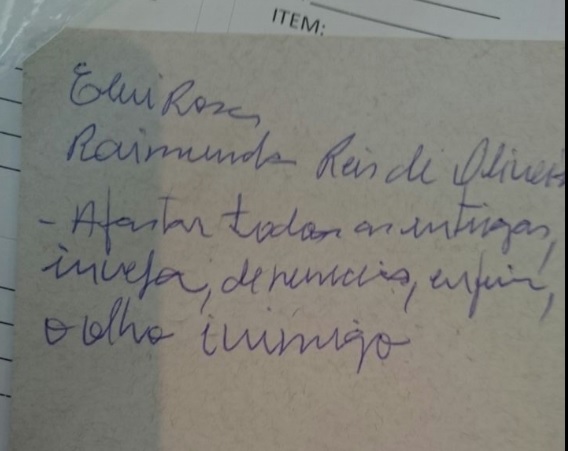 ITEM:
Elui Rosa,
Raimunda Reis de Oliveir
- Afastar todas as intrigas,
inveja, denuncias, enfim,
o olho inimigo